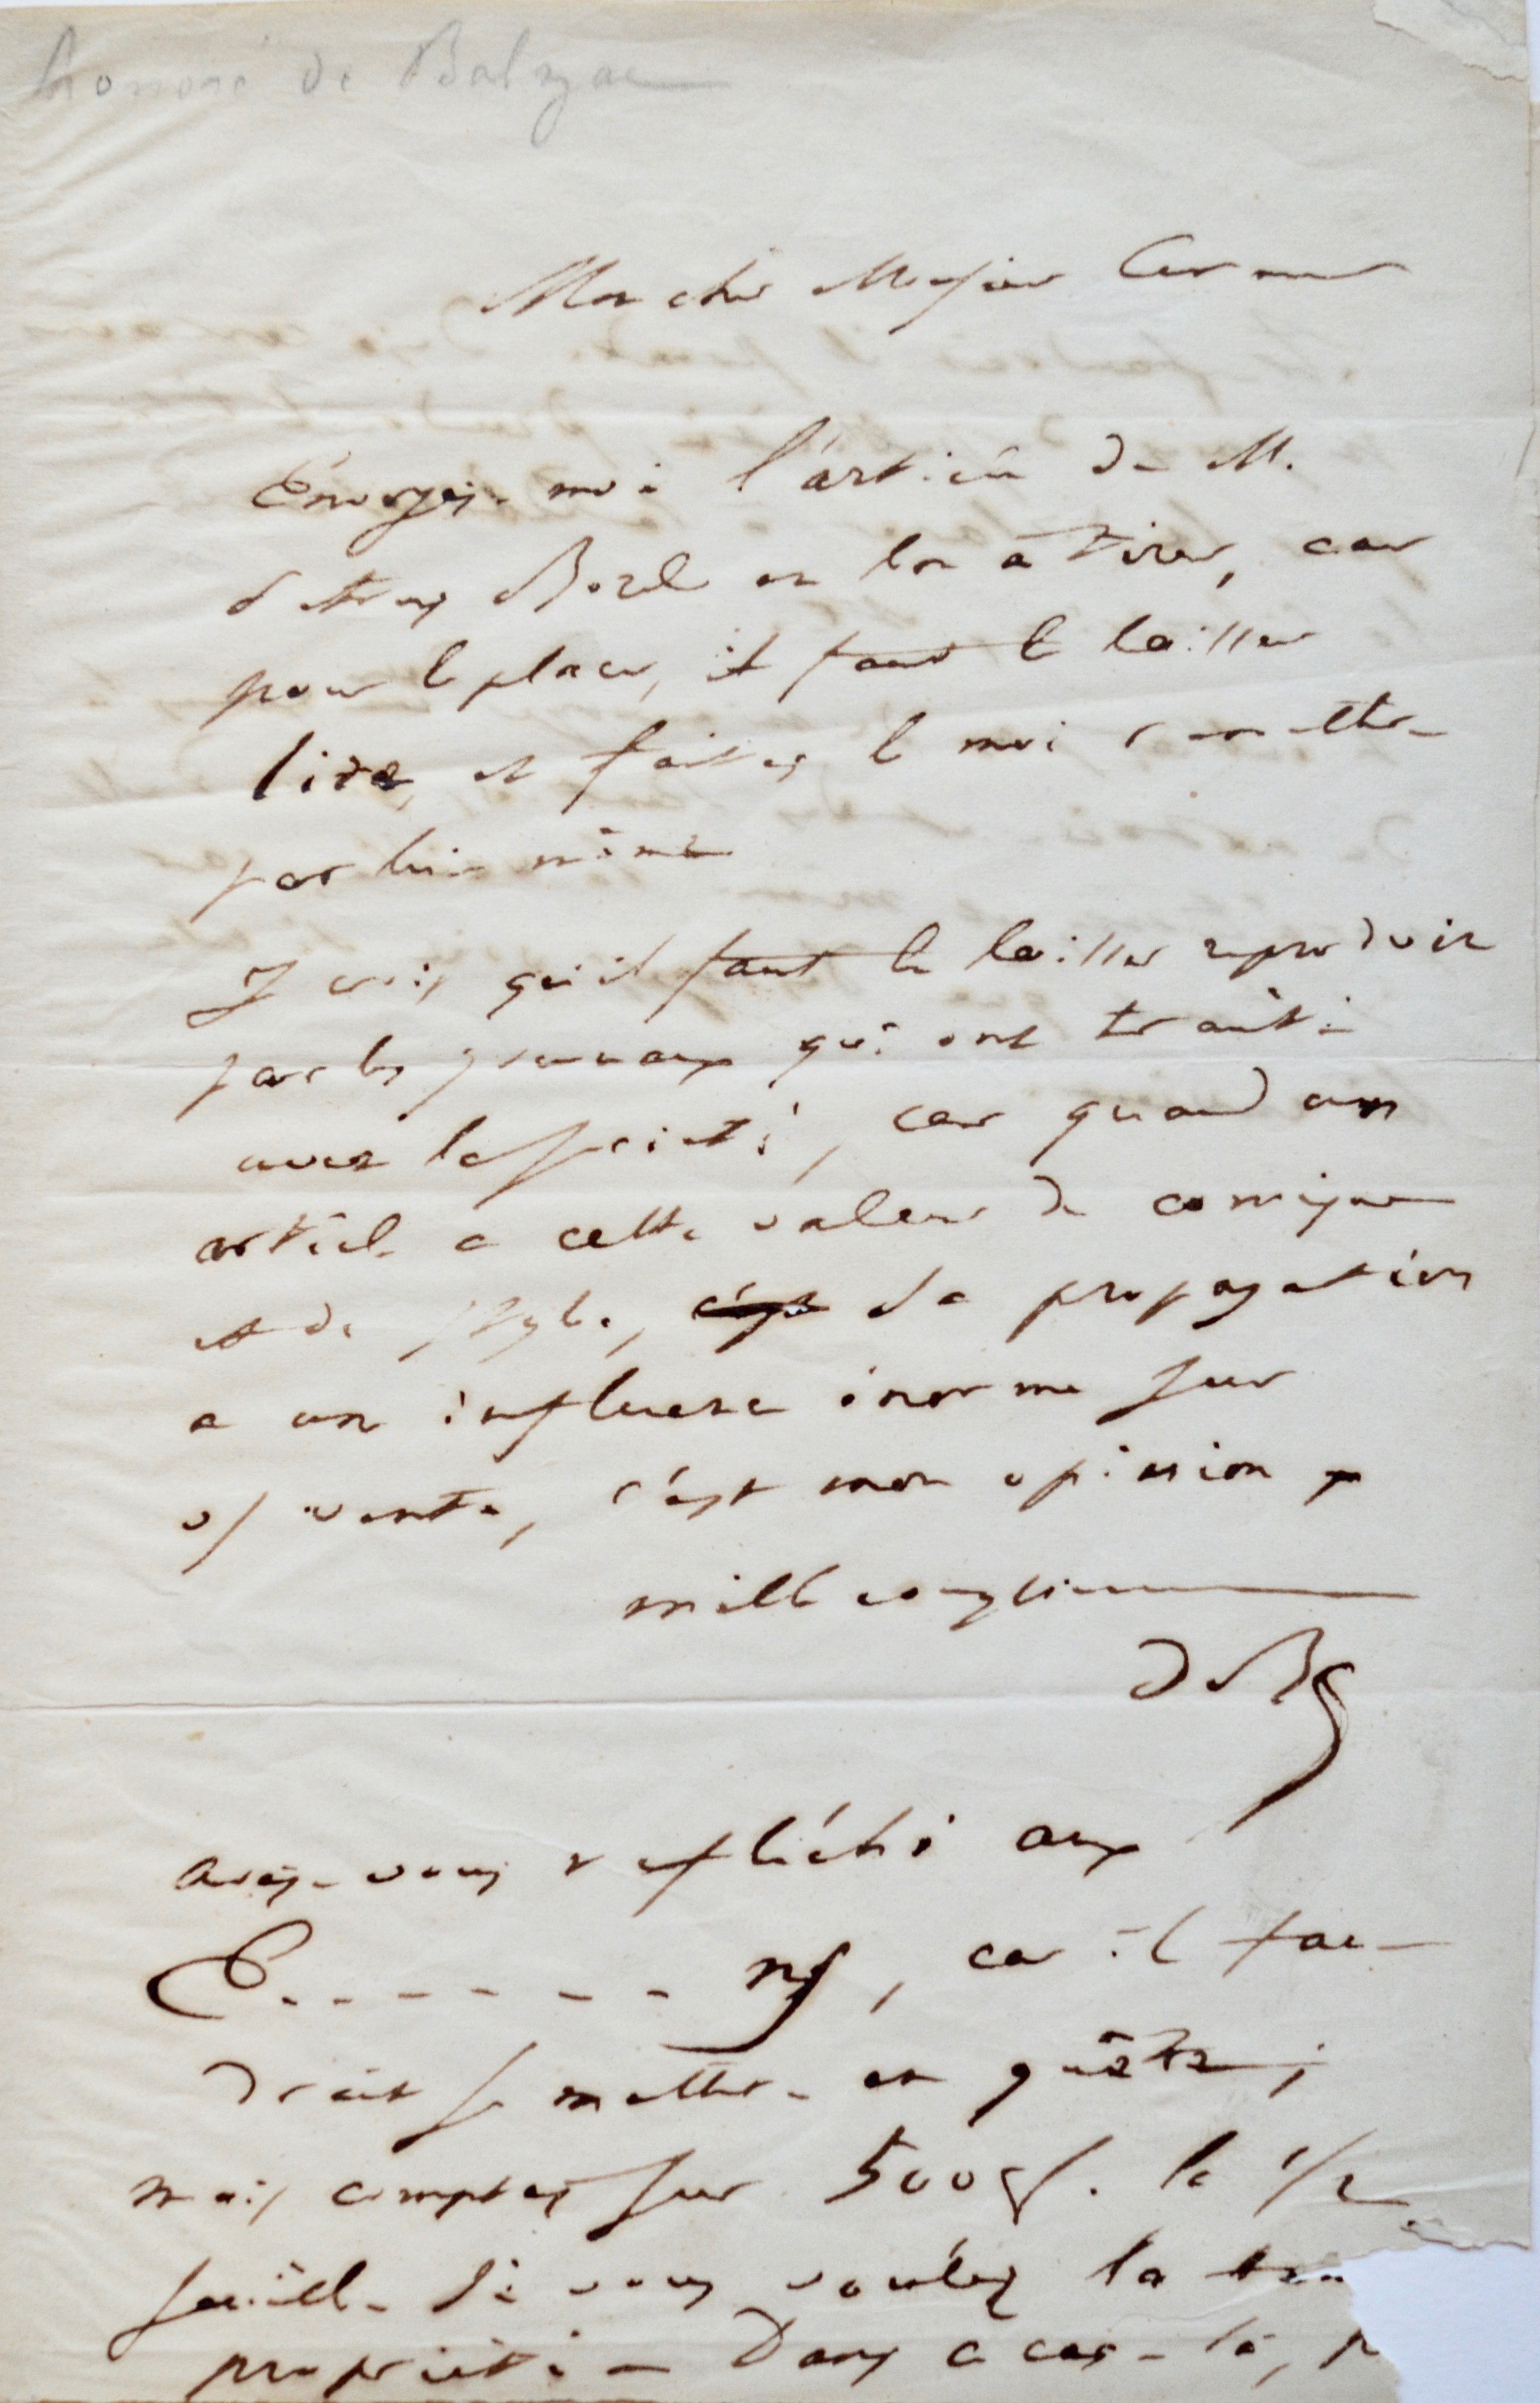 honoré de Balzac
Mon cher Monsieur Curmer
Envoyez-moi l'article de M.
Petrus Borel en bon à tirer, car
pour le placer, il faut le laisser
lire, et faites le moi remettre
par lui-même
Je crois qu'il faut le laisser reproduire
par les journaux qui ont traité
avec la société, car quand un
article a cette valeur de comique
et de style, c'est sa propagation
a un influence énorme sur
v/ vente, c'est mon opinion
mille complimens
de Bc
avez-vous réfléchi aux
E. - - - - - - ns, car il fau-
drait se mettre en quête;
mais comptez sur 500 f. la 1/2
feuille si vous voulez la
propriété — Dans ce cas-là, p